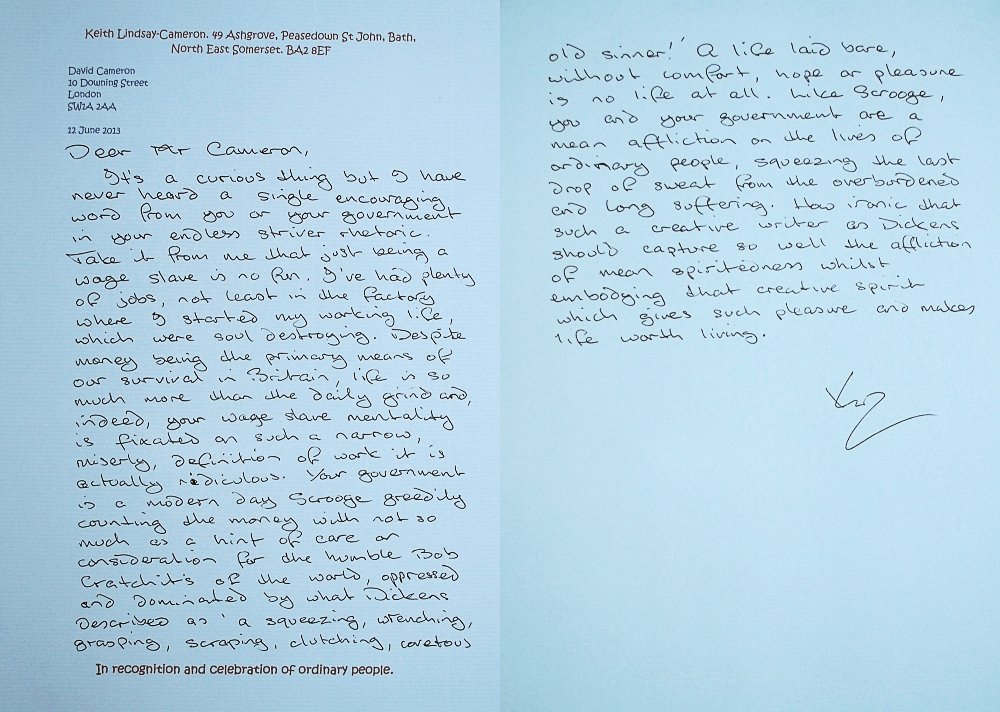 Keith Lindsay-Cameron. 49 Ashgrove, Peasedown St John, Bath,
North East Somerset. BA2 8EF
David Cameron
10 Downing Street
London
SW1A 2AA
12 June 2013
Dear Mr Cameron,
It's a curious thing but I have
never heard a single encouraging
word from you or your government
in your endless striver rhetoric.
Take it from me that just being a
wage slave is no fun. I've had plenty
of jobs, not least in the factory
where I started my working life,
which were soul destroying. Despite
money being the primary means of
our survival in Britain, life is so
much more than the daily grind and,
indeed, your wage slave mentality
is fixated on such a narrow,
miserly, definition of work it is
actually ridiculous. Your government
is a modern day Scrooge greedily
counting the money with not so
much as a hint of care or
consideration for the humble Bob
Cratchit's of the world, oppressed
and dominated by what Dickens
described as 'a squeezing, wrenching,
grasping, scraping, clutching, covetous
In recognition and celebration of ordinary people.
old sinner!' A life laid bare,
without comfort, hope or pleasure
is no life at all. Like Scrooge,
you and your government are a
mean affliction on the lives of
ordinary people, squeezing the last
drop of sweat from the overburdened
and long suffering. How ironic that
such a creative writer as Dickens
should capture so well the affliction
of mean spiritedness whilst
embodying that creative spirit
which gives such pleasure and makes
life worth living.